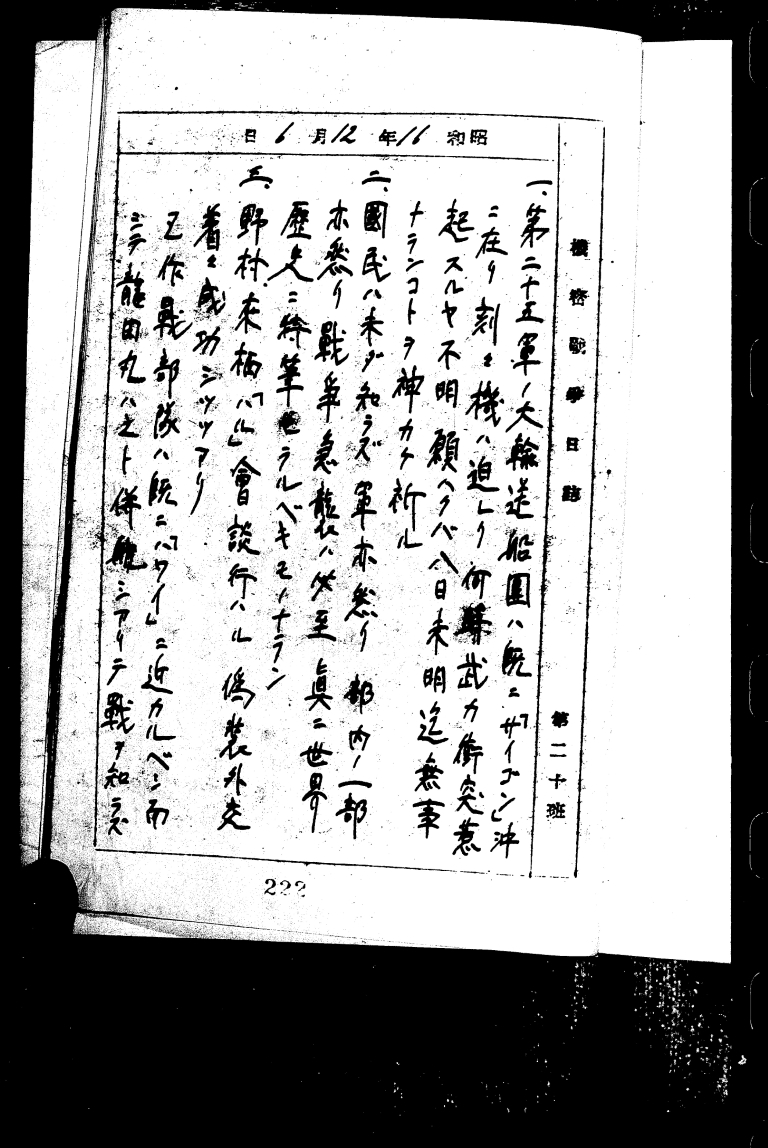 機密戦争日誌
第二十班
昭和16年12月6日
一、第二十五軍ノ大輸送船團ハ既ニ「サイゴン」沖
ニ在リ刻々機ハ迫レリ何時武力衝突惹
起スルヤ不明 願ハクバ八日未明迄無事
ナランコトヲ神カケ祈ル
二、國民ハ未ダ知ラズ軍亦然リ部内ノ一部
亦然リ戰爭急襲ハ必至眞ニ世界
歴史ニ特筆セラルベキモノナラン
三、野村、來栖「ハル」會談行ハル 偽装外交
着々成功シツツアリ
作戰部隊ハ既ニ「ハワイ」ニ近カルベシ而
シテ龍田丸ハ之ト併航シアリテ戰ヲ知ラズ
222